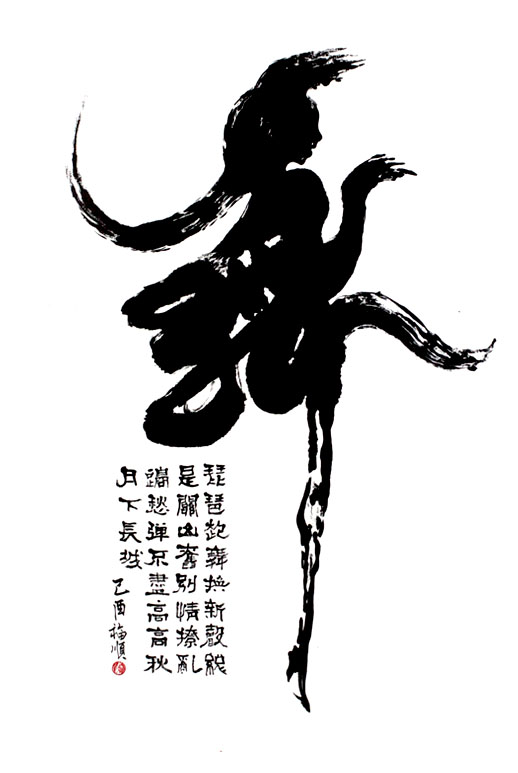 舞
琵琶起舞換新聲總
是關山舊別情撩亂
邊愁彈不盡高高秋
月下長城
己酉福順